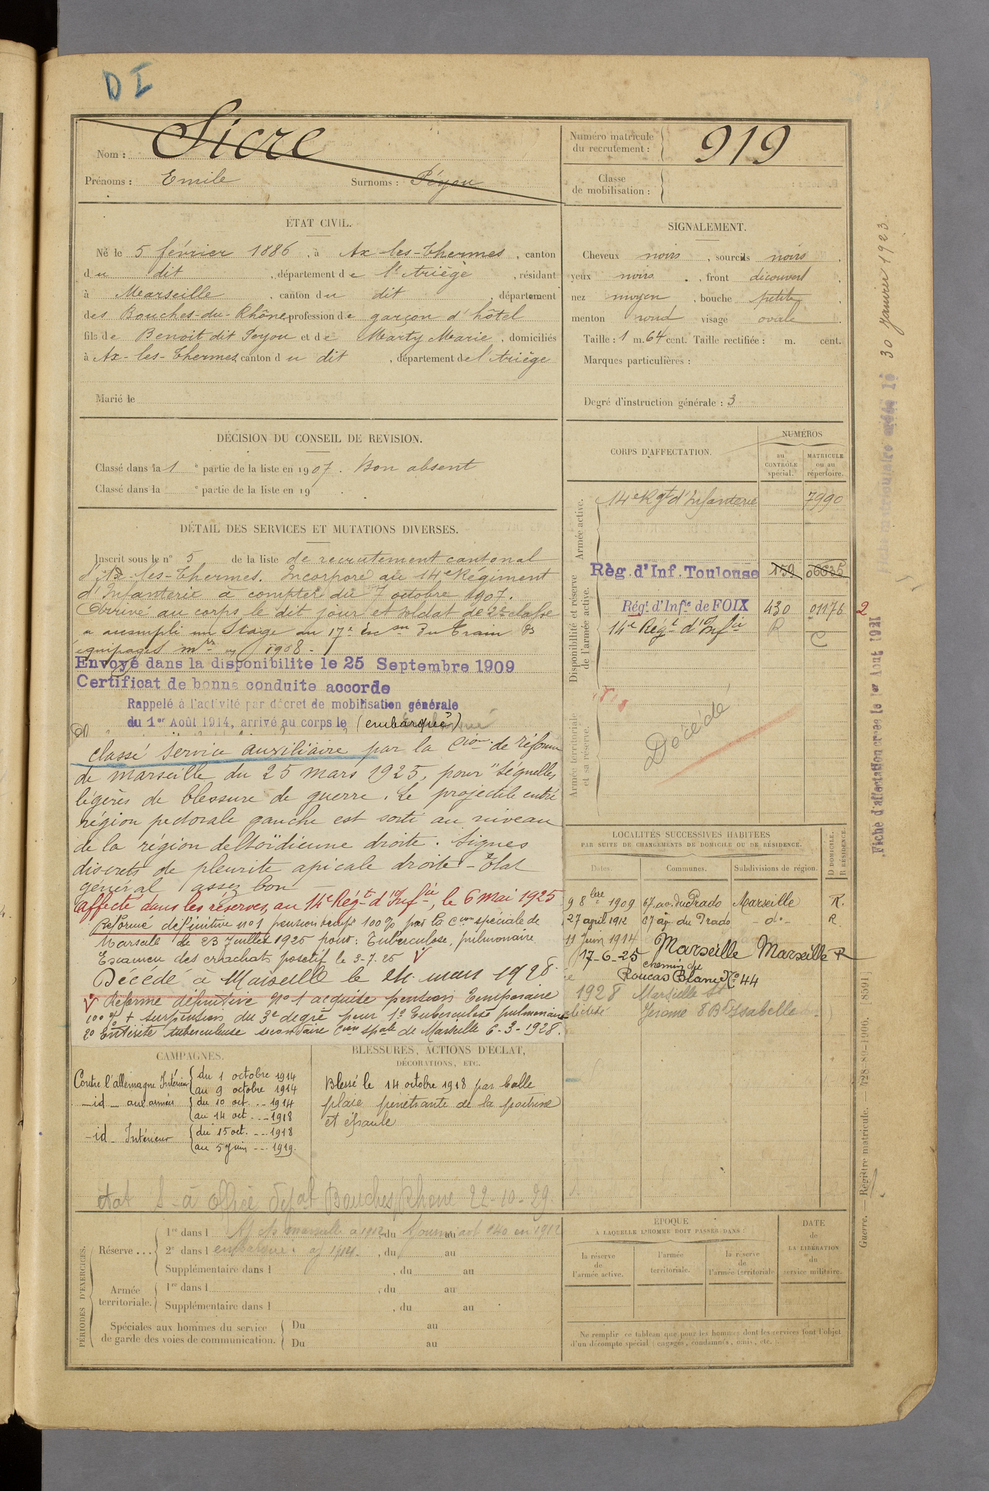 D I
Nom : Sicre
Prénoms : Emile Surnoms : Péyou
Numéro matricule du recrutement : 919
Classe de mobilisation :
ÉTAT CIVIL.
Né le 5 février 1886, à Ax-les-Thermes, canton
du dit, département de l'Ariège, résidant
à Marseille, canton du dit, département
des Bouches-du-Rhône profession de garçon d'hôtel
fils de Benoit dit Peyou et de Marty Marie, domiciliés
à Ax-les-Thermes canton du dit, département de l'Ariège
Marié le
SIGNALEMENT.
Cheveux noirs, sourcils noirs
yeux noirs, front découvert
nez moyen, bouche petite
menton rond visage ovale
Taille : 1 m. 64 cent. Taille rectifiée : m. cent.
Marques particulières :
Degré d'instruction générale : 3
DÉCISION DU CONSEIL DE REVISION.
Classé dans la 1e partie de la liste en 1907. Bon absent
Classé dans la e partie de la liste en 19 .
DÉTAIL DES SERVICES ET MUTATIONS DIVERSES.
Inscrit sous le n° 5 de la liste de recrutement cantonal
d'Ax-les-Thermes. Incorporé au 14e Régiment
d'Infanterie à compter du 7 octobre 1907.
Arrivé au corps le dit jour et soldat de 2e classe
a accompli un Stage au 17e Eson du Train des
équipages mres 1908.
Envoyé dans la disponibilite le 25 Septembre 1909
Certificat de bonne conduite accorde
Rappelé à l'activité par décret de mobilisation générale
du 1er Août 1914, arrivé au corps le (embarqué)
classé service auxiliaire par la Cion de réforme
de Marseille du 25 mars 1925, pour "séquelles
légères de blessure de guerre. Le projectile entré
région pectorale gauche est sorti au niveau
de la région deltoïdienne droite. Signes
discrets de pleurite apicale droite - Etat
général assez bon
Affecté dans les réserves, au 14e Régt d'Infie, le 6 mai 1925
Réformé définitive n°1 pension temp. 100 % par la Con spéciale de
Marseille le 23 Juillet 1925 pour : Tuberculose pulmonaire
Examen des crachats positif le 3-7-25
Décédé à Marseille le 24 mars 1928
V Réforme définitive N°1 acquise pension temporaire
100% + surpension du 3e degré pour 1° Tuberculose pulmonaire
2° Entérite tuberculeuse secondaire Con spale de Marseille 6-3-1928.
CORPS D'AFFECTATION.
NUMÉROS
AU CONTRÔLE spécial.
MATRICULE ou au répertoire.
Armée active.
14e Rgt d'Infanterie 7990
Disponibilité et réserve de l'armée active.
Règ. d'Inf. Toulouse 159
Régt d'Infie de FOIX 430 01176 2
14e Régt d'Infie R C
Armée territoriale et sa réserve.
Décédé
LOCALITÉS SUCCESSIVES HABITÉES
PAR SUITE DE CHANGEMENTS DE DOMICILE OU DE RÉSIDENCE.
Dates. Communes. Subdivisions de région. D DOMICILE. R RÉSIDENCE.
9 8bre 1909 67 av. du Prado Marseille R.
27 april 1912 27 av du Prado -do- R
11 Juin 1914 Marseille Marseille R
17-6-25 chemin de
Roucas Blanc No 44
1928 Marseille St
Jérome 8 Bd Isabelle
CAMPAGNES.
Contre l'allemagne Intérieur du 1 octobre 1914
au 9 octobre 1914
-id- aux armées du 10 oct. .. 1914
au 14 oct ... 1918
-id- Intérieur du 15 oct. ... 1918
au 5 Juin ... 1919.
BLESSURES, ACTIONS D'ÉCLAT,
DÉCORATIONS, ETC.
Blessé le 14 octobre 1918 par balle
plaie pénétrante de la poitrine
et épaule
22-10-29.
PÉRIODES D'EXERCICES.
Réserve... 1re dans l
2e dans l embarqué, du au
Supplémentaire dans l , du au
Armée territoriale. 1re dans l , du au
Supplémentaire dans l , du au
Spéciales aux hommes du service de garde des voies de communication. Du au
Du au
ÉPOQUE
À LAQUELLE L'HOMME DOIT PASSER DANS
la réserve de l'armée active.
l'armée territoriale.
la réserve de l'armée territoriale
DATE de LA LIBÉRATION du service militaire.
Ne remplir ce tableau que pour les hommes dont les services font l'objet
d'un décompte spécial : engagés, condamnés, omis, etc.
30 Janvier 1923.
Fiche d'affectation créée le 1er Août 1921
Guerre. — Registre matricule. — 728-80-1906. [8591]